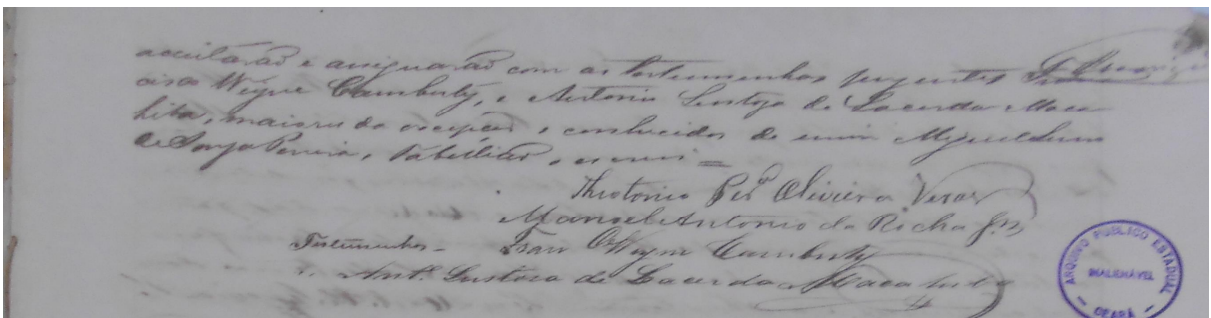 acceitarão e assignarão com as testemunhas prezentes Fran
cisca Wigne Camburly, e Antonio Lustoza de Lacerda Maca
hiba, maiores de excepção, e conhecidos de mim Miguel
de Souza Pereira, Tabellião, escrevi =
Theotonio Per.ª Oliveira Veras
Manoel Antonio da Rocha Jr
Testemunhas - Fran Wigne Camburly
Ant.º Lustosa de Lacerda Macahiba
ARQUIVO PÚBLICO ESTADUAL
INALIENÁVEL
CEARÁ